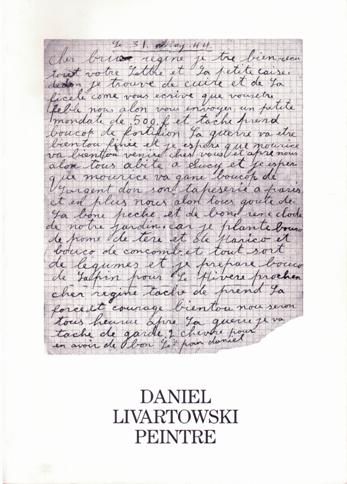 Le 31 . . 44
cher regine je tre bien
tout votre Lettre et La petite caise.
dedan je trouve de cuire et de La
ficele come vous ecrive que vous etre
feble nous alon vous envoyer un petite
mondate de 500 f et tache prend
boucop de fortifion La guerre va etre
bientou finie et je espere que mourice
va bientou venire chez vous et apre nous
alon tous abite a et je espere
que mourice va gane boucop de
L'argent don son tapeserie a paris
et en plus nous alon tous goute de
La bone peche et de bond
de notre jardin. car je plante bouco
de pome de tere et de Harico et
bouco de concombre et tout sort
de Legume et je prepare bouco
de Lapin pour Le Hivere prochen
cher regine tache de prend La
force et courage bientou nou seron
tous heureu apre La guerre je va
tache de garde 2 chevre pour
en avoir de bon pain daniel
DANIEL
LIVARTOWSKI
PEINTRE